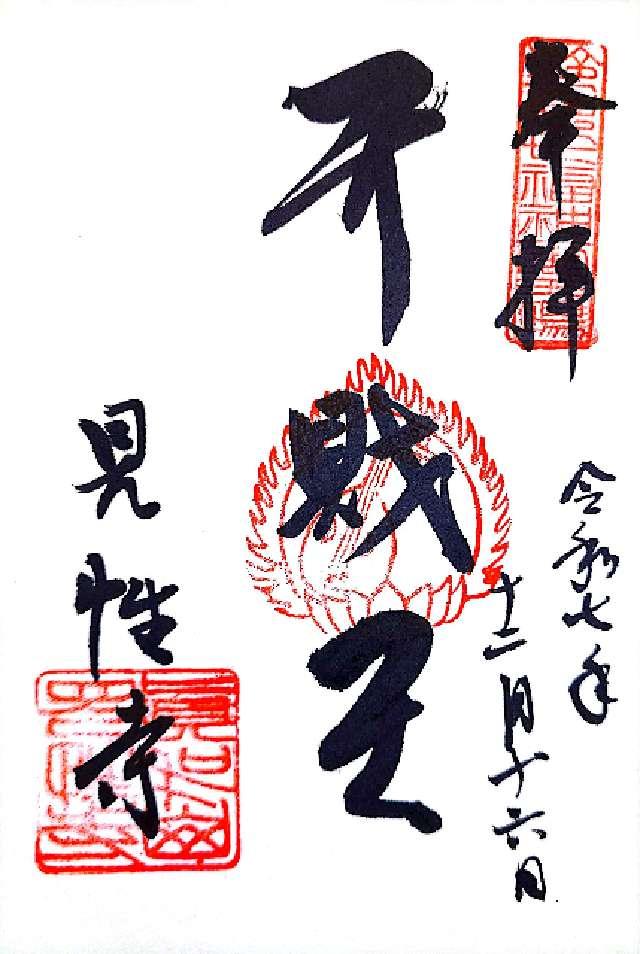 奉拝
令和七年
十二月十六日
弁財天
見性寺